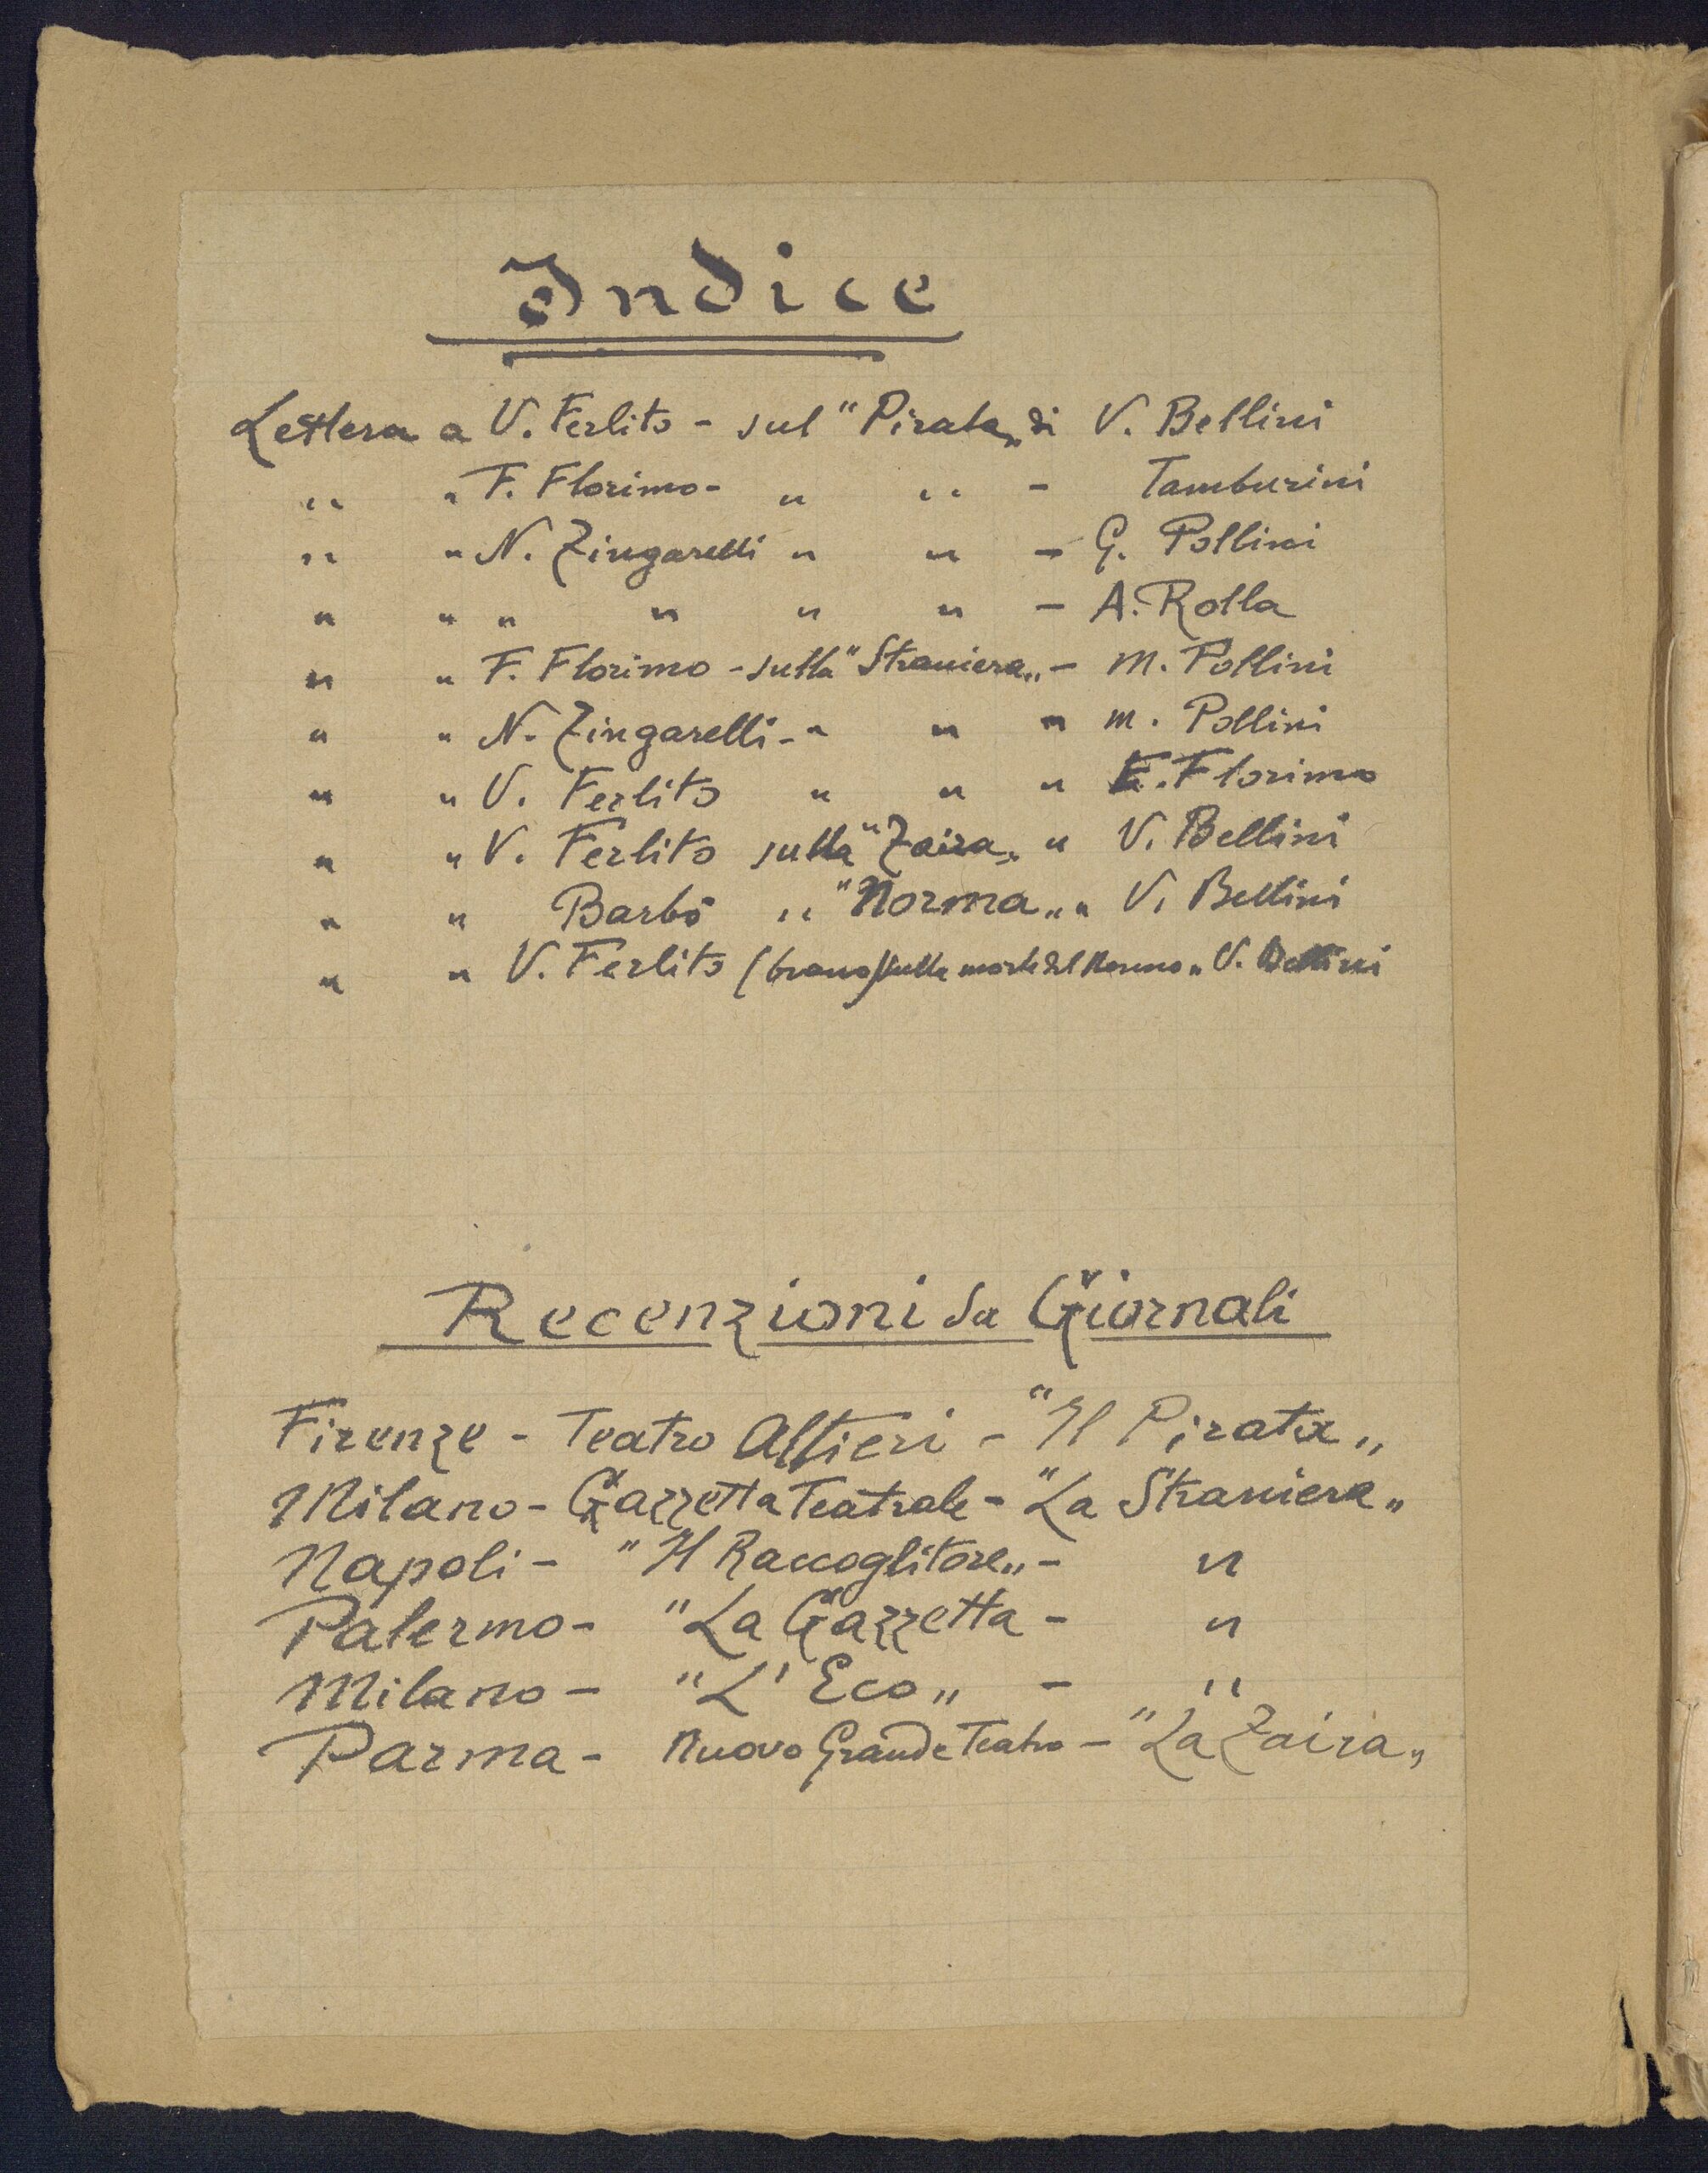 Indice
Lettera a V. Ferlito - sul "Pirata„ di V. Bellini
„ „ F. Florimo - „ „ - Tamburini
„ „ N. Zingarelli „ „ - G. Pollini
„ „ „ „ „ „ - A. Rolla
„ „ F. Florimo - sulla "Straniera„ - M. Pollini
„ „ N. Zingarelli - „ „ „ M. Pollini
„ „ V. Ferlito „ „ „ F. Florimo
„ „ V. Ferlito sulla "Zaira„ „ V. Bellini
„ „ Barbò „ "Norma„ „ V. Bellini
„ „ V. Ferlito (brano) sulla morte del „ V. Bellini
Recenzioni da Giornali
Firenze - Teatro Alfieri - "Il Pirata„
Milano - Gazzetta Teatrale - "La Straniera„
Napoli - "Il Raccoglitore„ - „
Palermo - "La Gazzetta - „
Milano - "L'Eco„ - „
Parma - Nuovo Grande Teatro - "La Zaira„